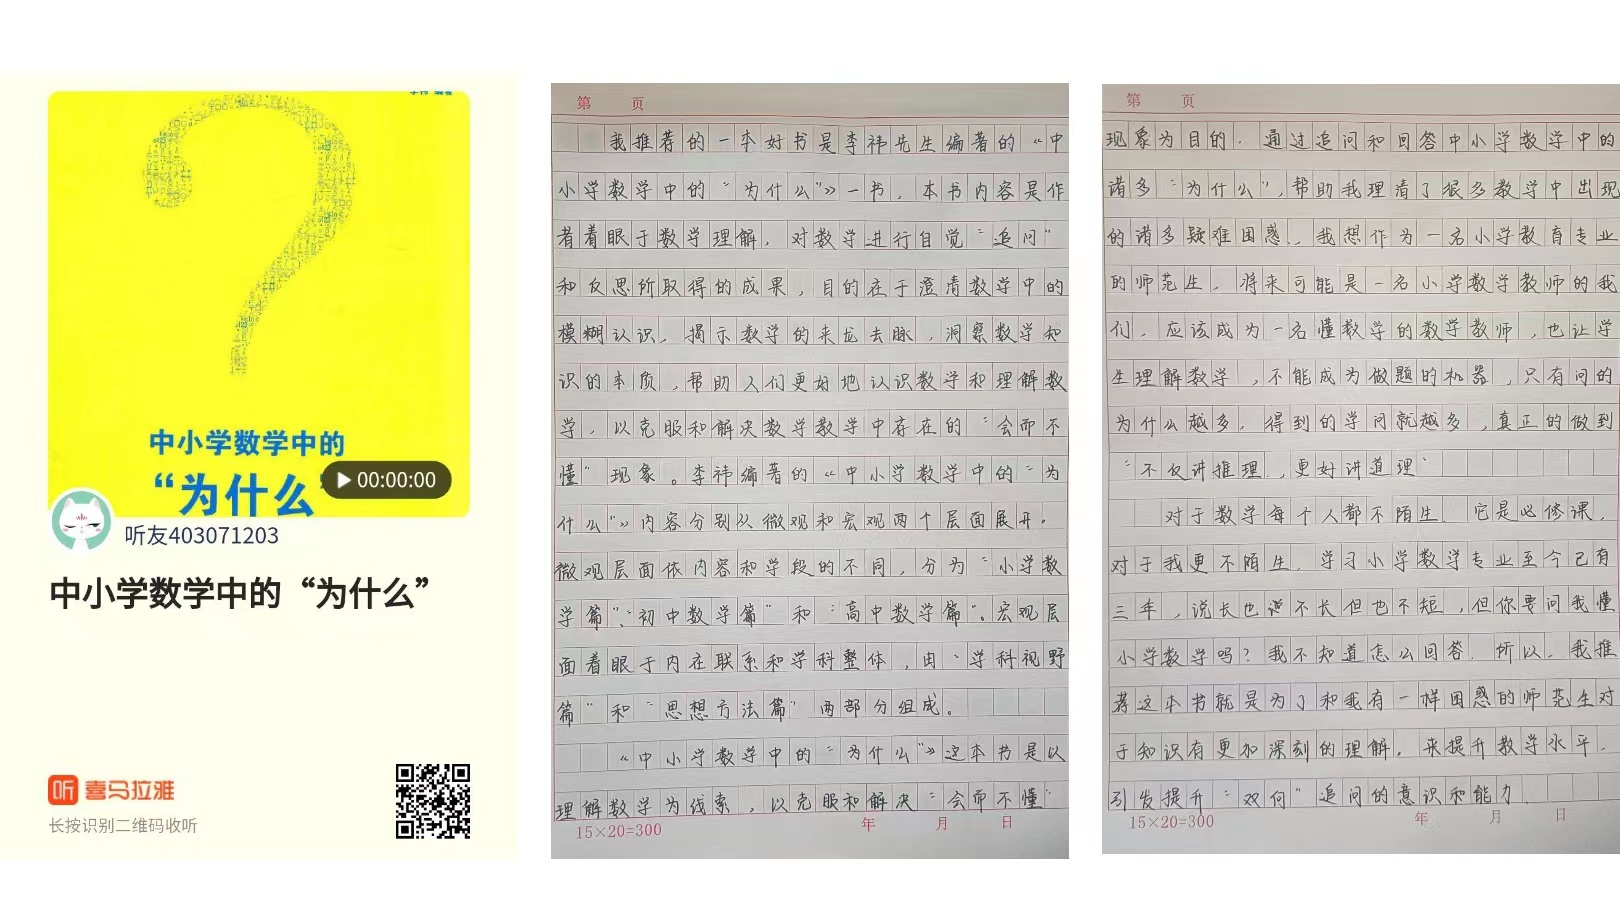 中小学数学中的
“为什么”
00:00:00
听友403071203
中小学数学中的“为什么”
听 喜马拉雅
长按识别二维码收听
第 页
我推荐的一本好书是李祎先生编著的“中
小学数学中的“为什么”》一书，本书内容是作
者着眼于数学理解，对数学进行自觉“追问”
和反思所取得的成果，目的在于澄清数学中的
模糊认识，揭示数学的来龙去脉，洞察数学知
识的本质，帮助人们更好地认识数学和理解数
学，以克服和解决数学教学中存在的“会而不
懂”现象。李祎编著的《中小学数学中的“为
什么”》内容分别从微观和宏观两个层面展开。
微观层面依内容和学段的不同，分为“小学数
学篇”、“初中数学篇”和“高中数学篇”。宏观层
面着眼于内在联系和学科整体，由“学科视野
篇”和“思想方法篇”两部分组成。
《中小学数学中的“为什么”》这本书是以
理解数学为线索，以克服和解决“会而不懂”
15×20=300 年 月 日
第 页
现象为目的．通过追问和回答中小学数学中的
诸多“为什么”，帮助我理清了很多数学中出现
的诸多疑难困惑．，我想作为一名小学教育专业
的师范生，将来可能是一名小学数学教师的我
们，应该成为一名懂数学的数学教师，也让学
生理解数学，不能成为做题的机器，只有问的
为什么越多，得到的学问就越多，真正的做到
“不仅讲推理，更好讲道理”
对于数学每个人都不陌生．它是必修课，
对于我更不陌生，学习小学数学专业至今已有
三年，说长也说不长但也不短，但你要问我懂
小学数学吗？我不知道怎么回答．所以，我推
荐这本书就是为了和我有一样困惑的师范生对
于知识有更加深刻的理解，来提升教学水平，
引发提升“双向”追问的意识和能力．
15×20=300 年 月 日